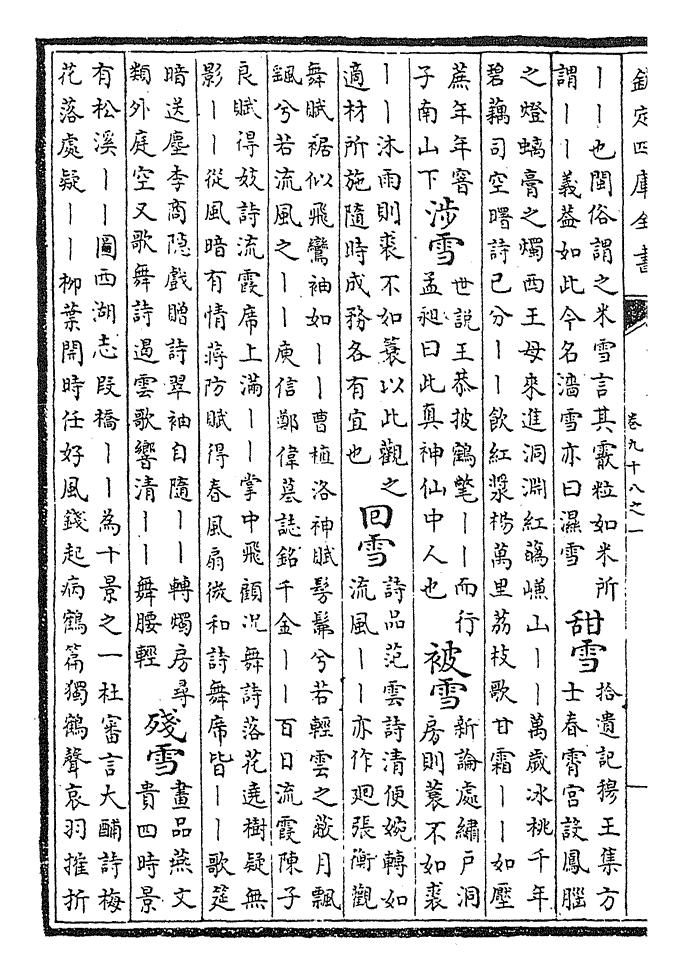 欽定四庫全書
卷九十八之一
丨丨也閩俗謂之米雪言其霰粒如米所
謂丨丨義葢如此今名濇雪亦曰濕雪
甜雪
拾遺記穆王集方
士春霄宮設鳳腦
之燈螭膏之燭西王母來進洞淵紅蘤嵰山丨丨萬歲冰桃千年
碧藕司空曙詩已分丨丨飲紅漿楊萬里荔枝歌甘霜丨丨如壓
蔗年年窨
子南山下
涉雪
世説王恭披鶴氅丨丨而行
孟昶曰此真神仙中人也
被雪
新論處繡戶洞
房則蓑不如裘
丨丨沐雨則裘不如蓑以此觀之
適材所施隨時成務各有宜也
回雪
詩品范雲詩清便婉轉如
流風丨丨亦作廻張衡觀
舞賦裾似飛鸞袖如丨丨曹植洛神賦髣髴兮若輕雲之蔽月飄
颻兮若流風之丨丨庾信鄭偉墓誌銘千金丨丨百日流霞陳子
良賦得妓詩流霞席上滿丨丨掌中飛顧況舞詩落花遶樹疑無
影丨丨從風暗有情蔣防賦得春風扇微和詩舞席皆丨丨歌筵
暗送塵李商隱戲贈詩翠袖自隨丨丨轉燭房尋
類外庭空又歌舞詩遏雲歌響清丨丨舞腰輕
殘雪
畫品燕文
貴四時景
有松溪丨丨圖西湖志段橋丨丨為十景之一杜審言大酺詩梅
花落處疑丨丨柳葉開時任好風錢起病鶴篇獨鶴聲哀羽摧折